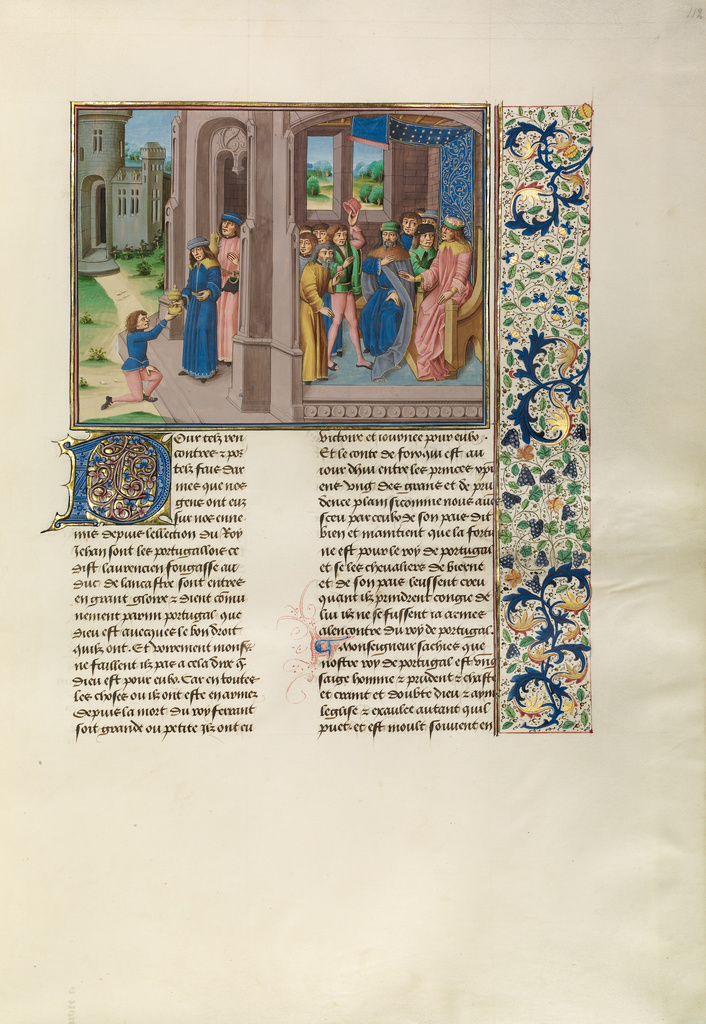 112
Pour telz ren
contres & pos
telz fais dar
mes que nos
gens ont euz
sur nos enne
mis depuis lellection du Roy
Jehan sont les portugallois ce
dist laurencien fougasse au
duc de lancastre sont entres
en grant gloire & dient comu
nement parmy portugal que
dieu est avecques le bon droit
quilz ont. Et voirement monsr
ne faillent ilz pas a cela dire q̃
dieu est pour eulx. Car en toutes
les choses ou ilz ont este en armes
depuis la mort du roy ferrant
soit grande ou petite ilz ont eu
victoire et iournee pour eulx.
Et le conte de foix qui est au
iour dhui entre les princes xpi
ens vng des grans et de pru
dence plain sicomme nous auons
sceu par ceulx de son pais dit
bien et maintient que la fortu
ne est pour le roy de portugal
et se les chevaliers de bierne
et de son pais leussent creu
quant ilz prindrent congie de
lui ilz ne se fussent ia armes
alencontre du roy de portugal.
Monseigneur sachies que
nostre roy de portugal est vng
saige homme & prudent & chaste
et craint et doubte dieu & ayme
leglise & exaulce autant quil
puet. et est moult souvent en